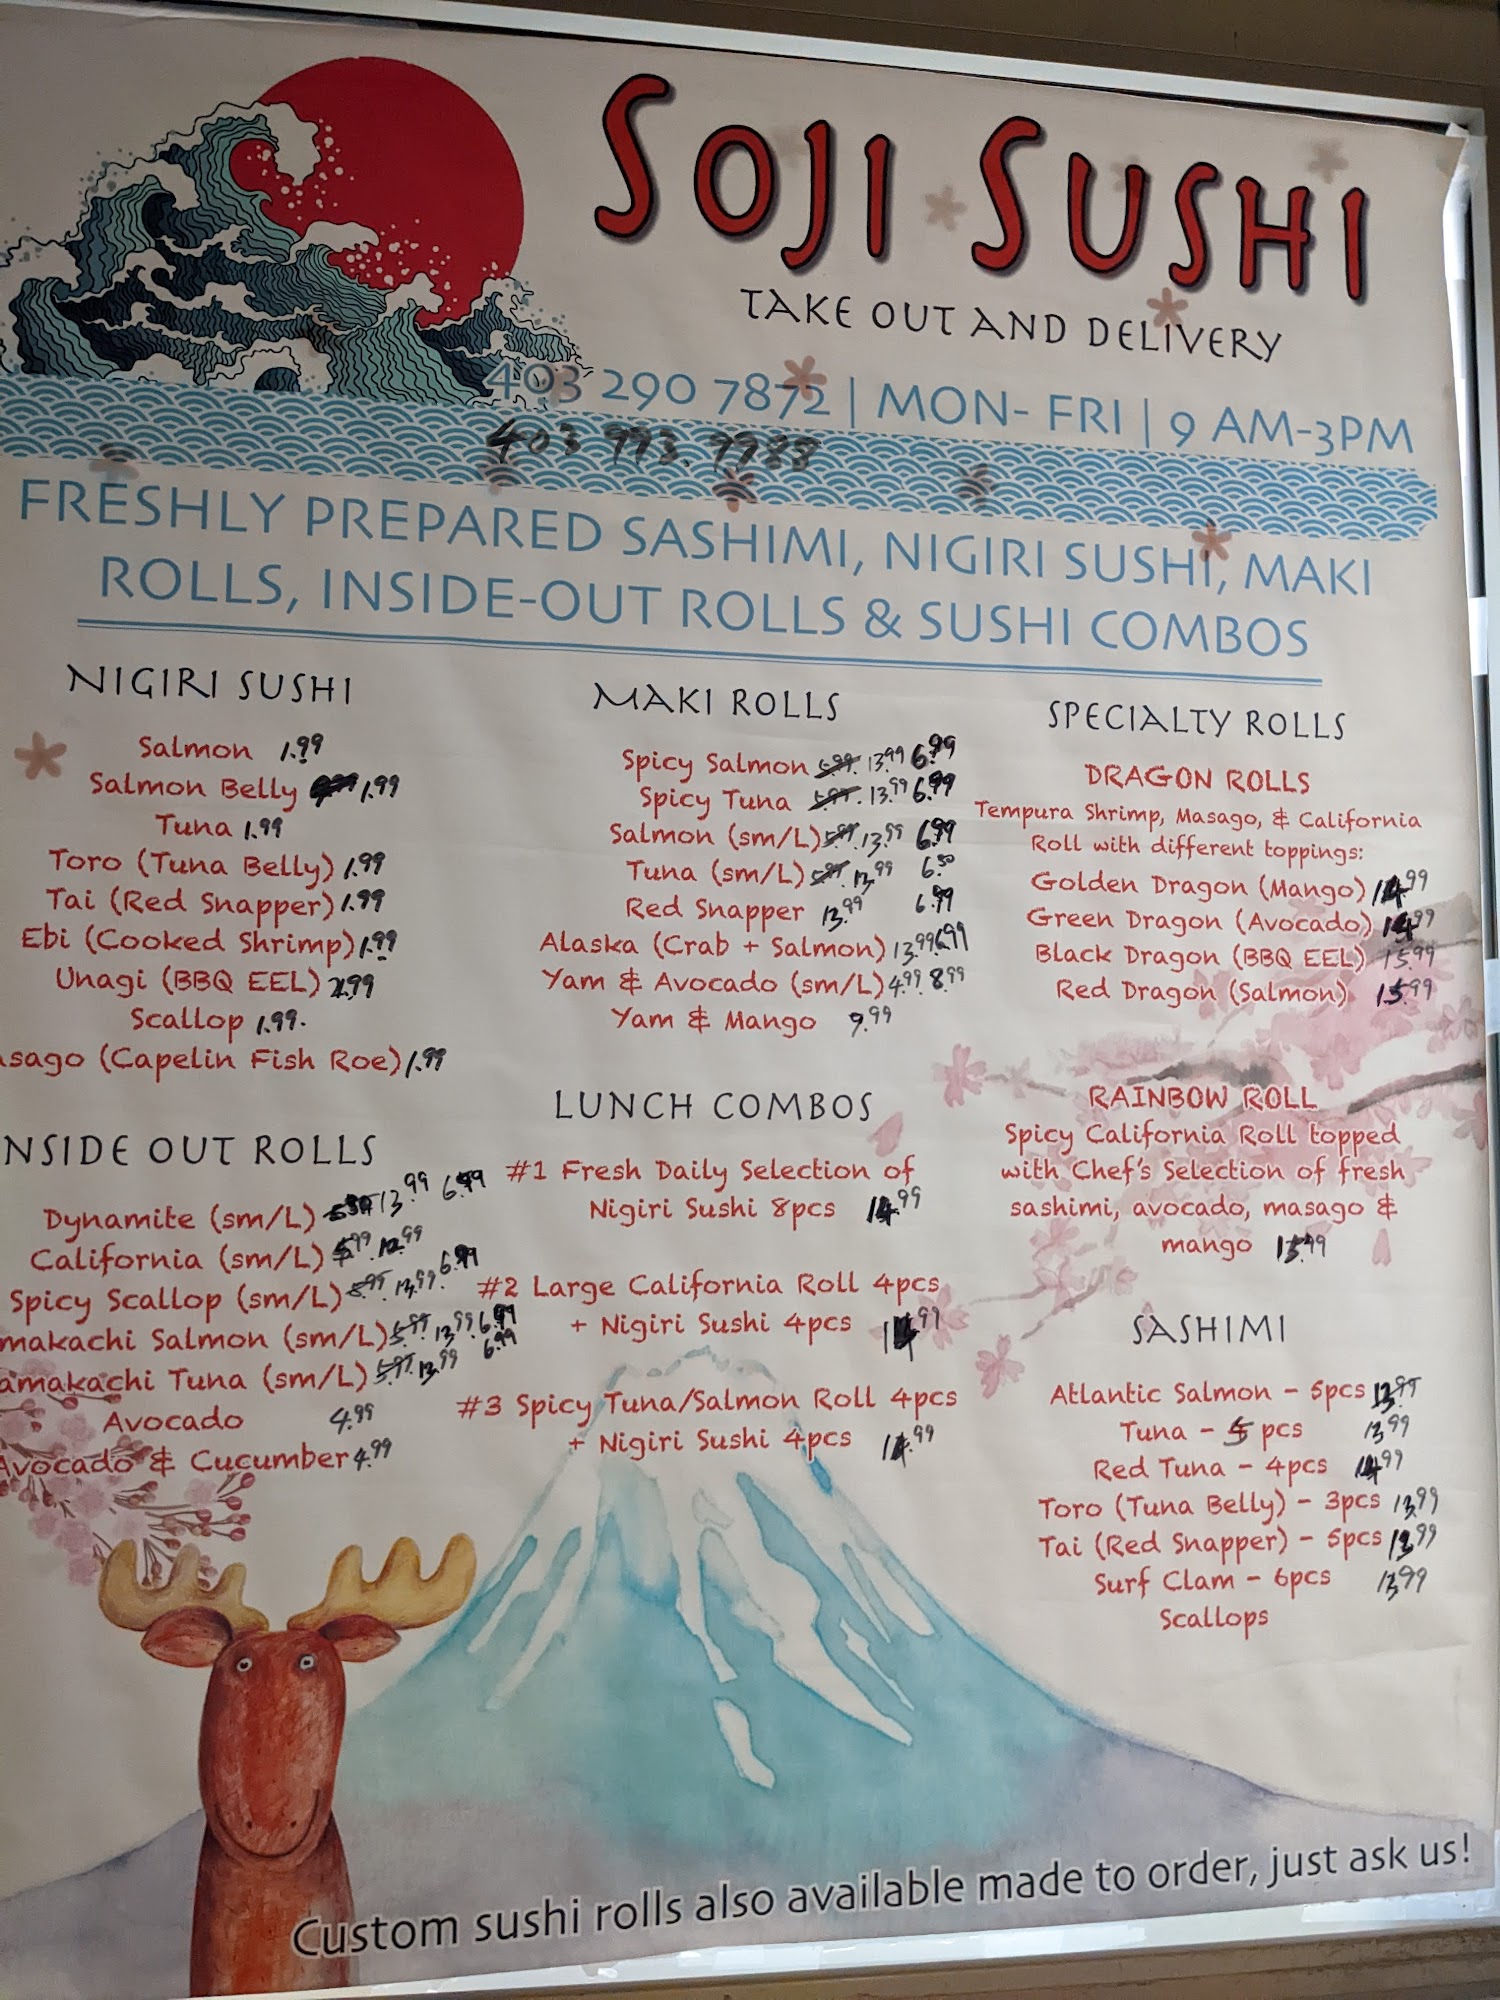 SOJI SUSHI
TAKE OUT AND DELIVERY
403 290 7872 | MON- FRI | 9 AM-3PM
403 993.9988
FRESHLY PREPARED SASHIMI, NIGIRI SUSHI, MAKI
ROLLS, INSIDE-OUT ROLLS & SUSHI COMBOS
NIGIRI SUSHI
Salmon 1.99
Salmon Belly 1.99
Tuna 1.99
Toro (Tuna Belly) 1.99
Tai (Red Snapper) 1.99
Ebi (Cooked Shrimp) 1.99
Unagi (BBQ EEL) 2.99
Scallop 1.99.
asago (Capelin Fish Roe) 1.99
NSIDE OUT ROLLS
Dynamite (sm/L) 13.99 6.99
California (sm/L) 5.99 12.99
Spicy Scallop (sm/L) 5.95 13.99 6.99
makachi Salmon (sm/L) 5.95 13.99 6.99
amakachi Tuna (sm/L) 5.95 13.99 6.99
Avocado 4.99
Avocado & Cucumber 4.99
MAKI ROLLS
Spicy Salmon 5.99 13.99 6.99
Spicy Tuna 5.95 13.99 6.99
Salmon (sm/L) 5.95 13.99 6.99
Tuna (sm/L) 5.95 13.99 6.50
Red Snapper 13.99 6.99
Alaska (Crab + Salmon) 13.99 6.99
Yam & Avocado (sm/L) 4.99 8.99
Yam & Mango 9.99
LUNCH COMBOS
#1 Fresh Daily Selection of
Nigiri Sushi 8pcs 14.99
#2 Large California Roll 4pcs
+ Nigiri Sushi 4pcs 14.99
#3 Spicy Tuna/Salmon Roll 4pcs
+ Nigiri Sushi 4pcs 14.99
SPECIALTY ROLLS
DRAGON ROLLS
Tempura Shrimp, Masago, & California
Roll with different toppings:
Golden Dragon (Mango) 14.99
Green Dragon (Avocado) 14.99
Black Dragon (BBQ EEL) 15.99
Red Dragon (Salmon) 15.99
RAINBOW ROLL
Spicy California Roll topped
with Chef's Selection of fresh
sashimi, avocado, masago &
mango 15.99
SASHIMI
Atlantic Salmon - 5pcs 13.95
Tuna - 5 pcs 13.99
Red Tuna - 4pcs 14.99
Toro (Tuna Belly) - 3pcs 13.99
Tai (Red Snapper) - 5pcs 13.99
Surf Clam - 6pcs 13.99
Scallops
Custom sushi rolls also available made to order, just ask us!